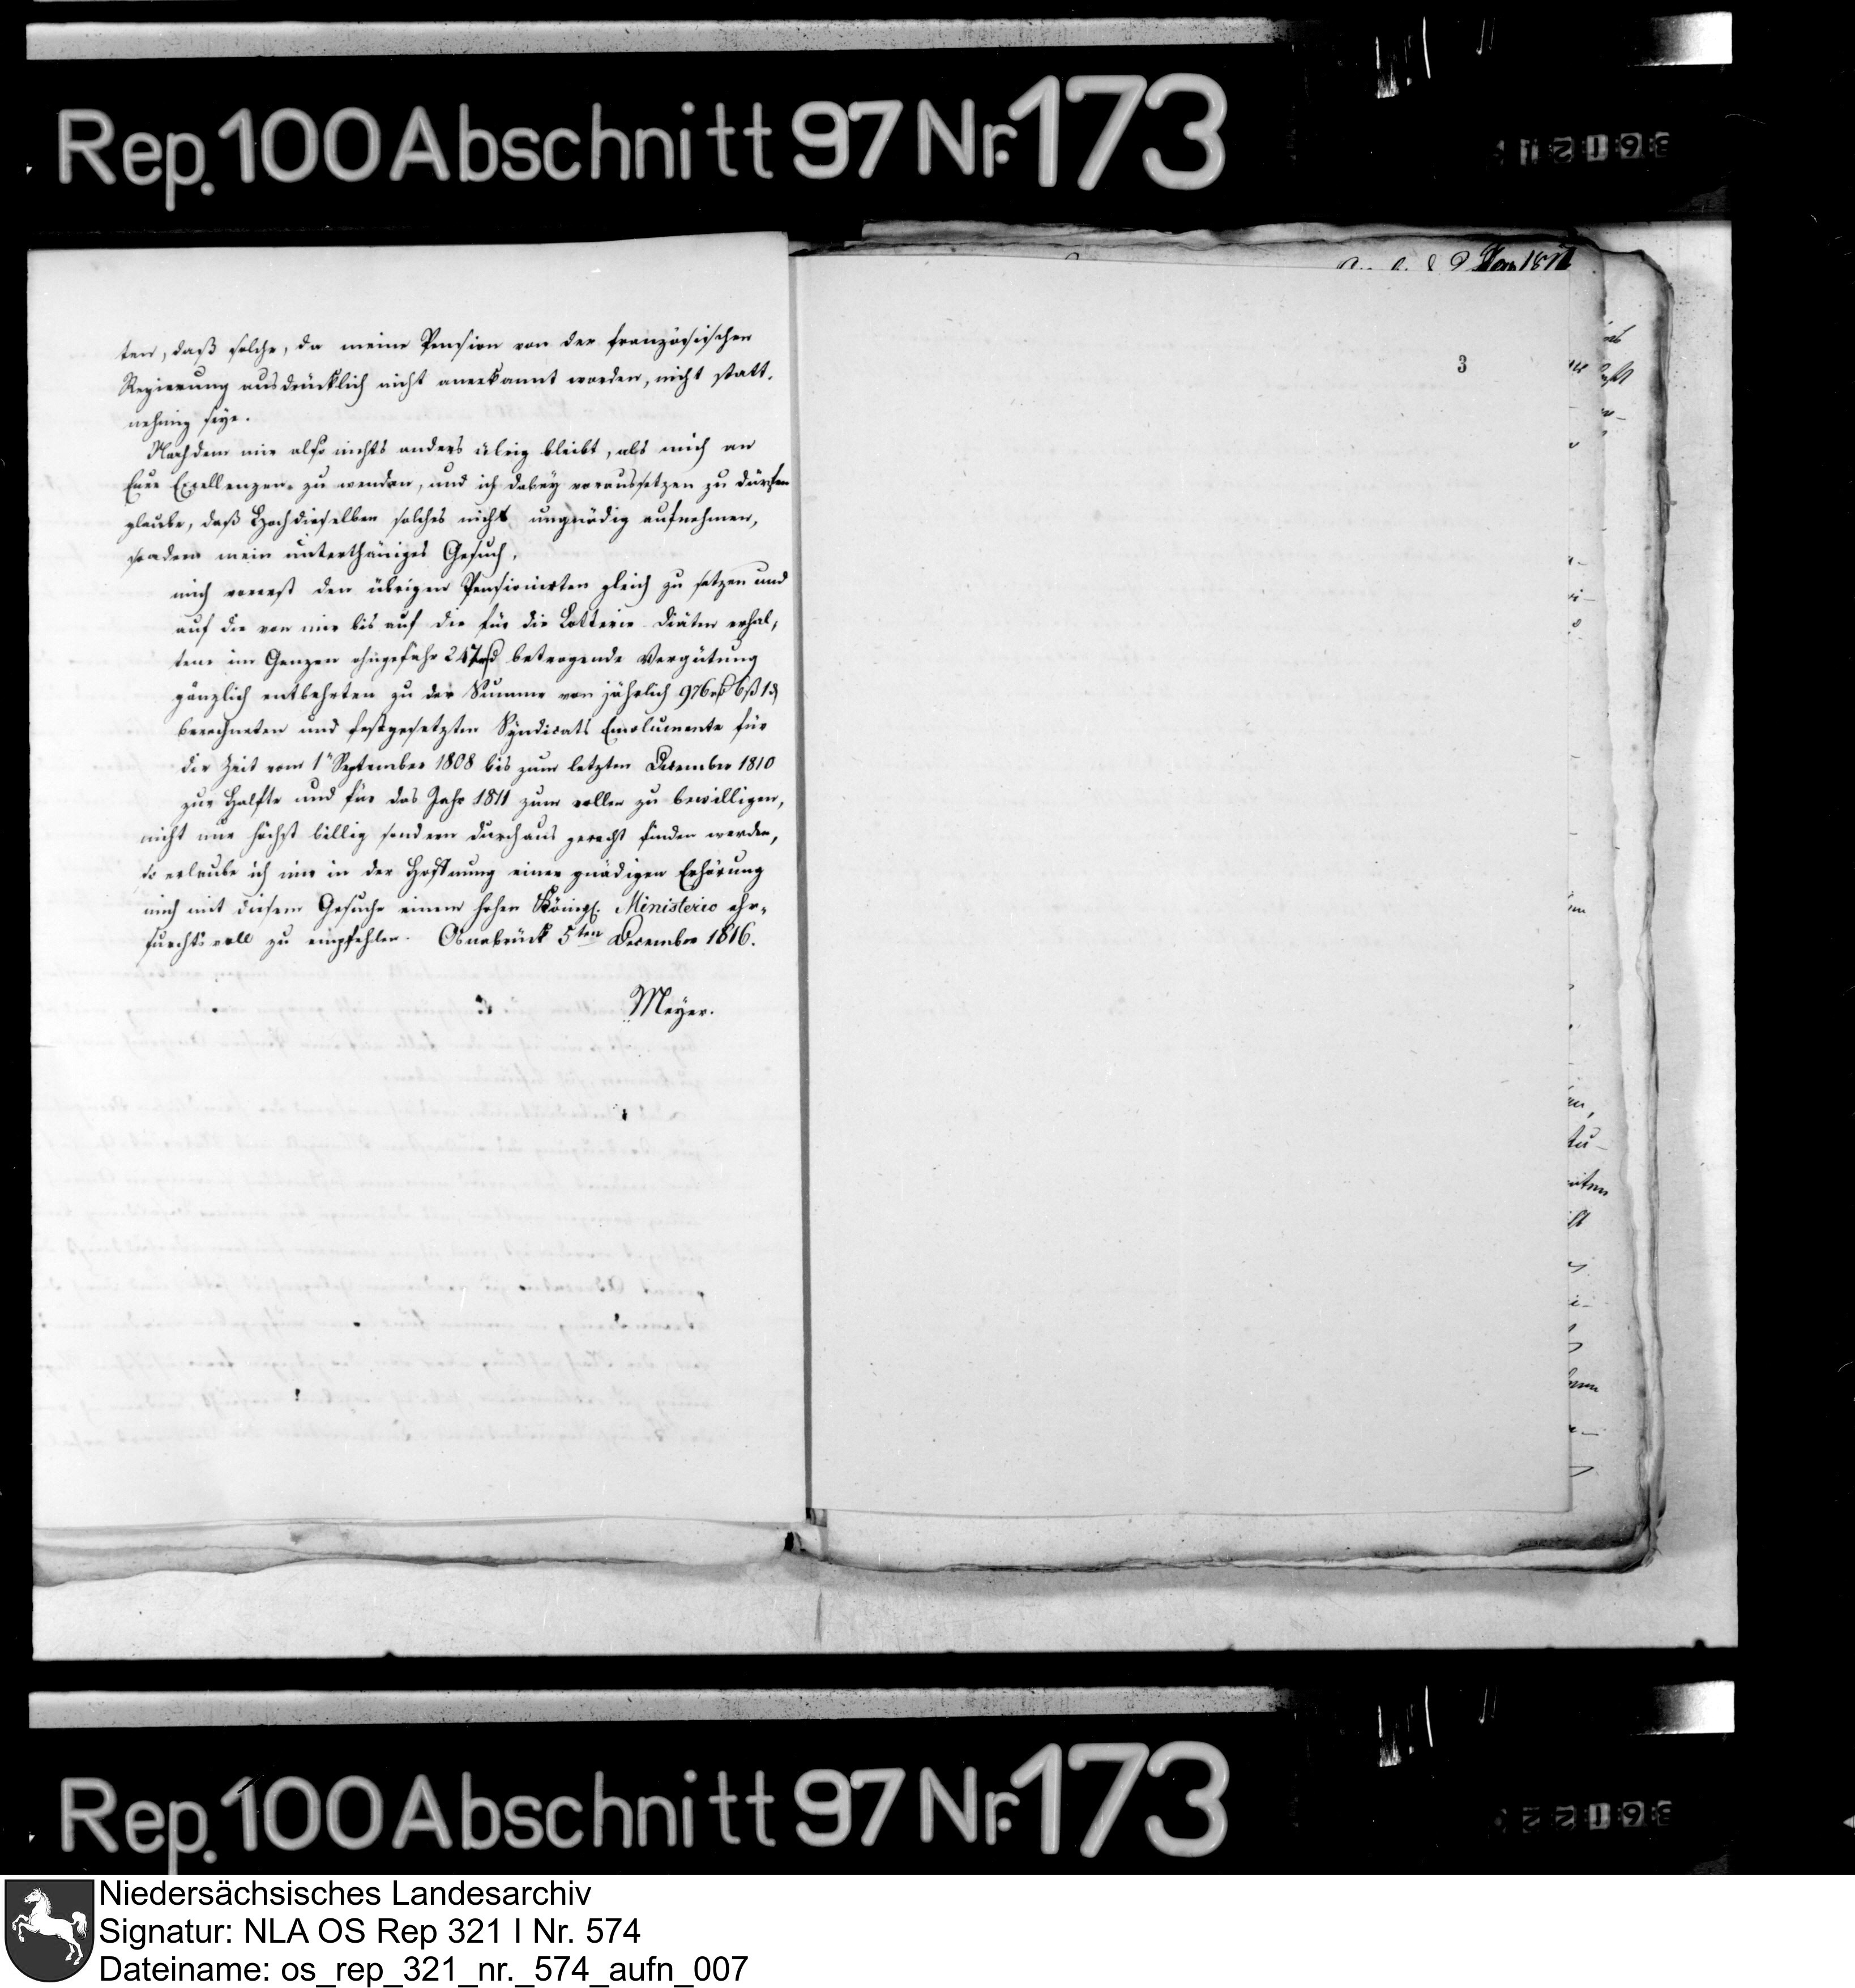 Rep. 100 Abschnitt 97 Nr. 173
ten, daß solche, da meine Pension von der französischen
Regierung ausdrücklich nicht anerkannt worden, nicht statt-
nehmig seye.
Nachdem mir also nichts anders übrig bleibt, als mich an
Eure Excellenzen zu wenden, und ich dabey voraussetzen zu dürfen
glaube, daß Hochdieselben solches nicht ungnädig aufnehmen,
sondern mein unterthäniges Gesuch,
mich vorerst den übrigen Pensionirten gleich zu setzen und
auf die von mir bis auf die für die Lotterie Diäten erhal-
tene im Ganzen ohngefähr 247 betragende Vergütung
gänzlich entbehrten zu der Summe von jährlich 976
berechneten und festgesetzten Syndicats Emolumente für
die Zeit vom 1 September 1808 bis zum letzten December 1810
zur Halfte und für das Jahr 1811 zum vollen zu bewilligen,
nicht nur höchst billig sondern durchaus gerecht finden werden,
so erlaube ich mir in der Hoffnung einer gnädigen Erhörung
mich mit diesem Gesuche einem hohen Königl. Ministerio ehr-
furchtsvoll zu empfehlen. Osnabrück 5ten December 1816.
Meyer.
3
Rep. 100 Abschnitt 97 Nr. 173
Niedersächsisches Landesarchiv
Signatur: NLA OS Rep 321 I Nr. 574
Dateiname: os_rep_321_nr._574_aufn_007